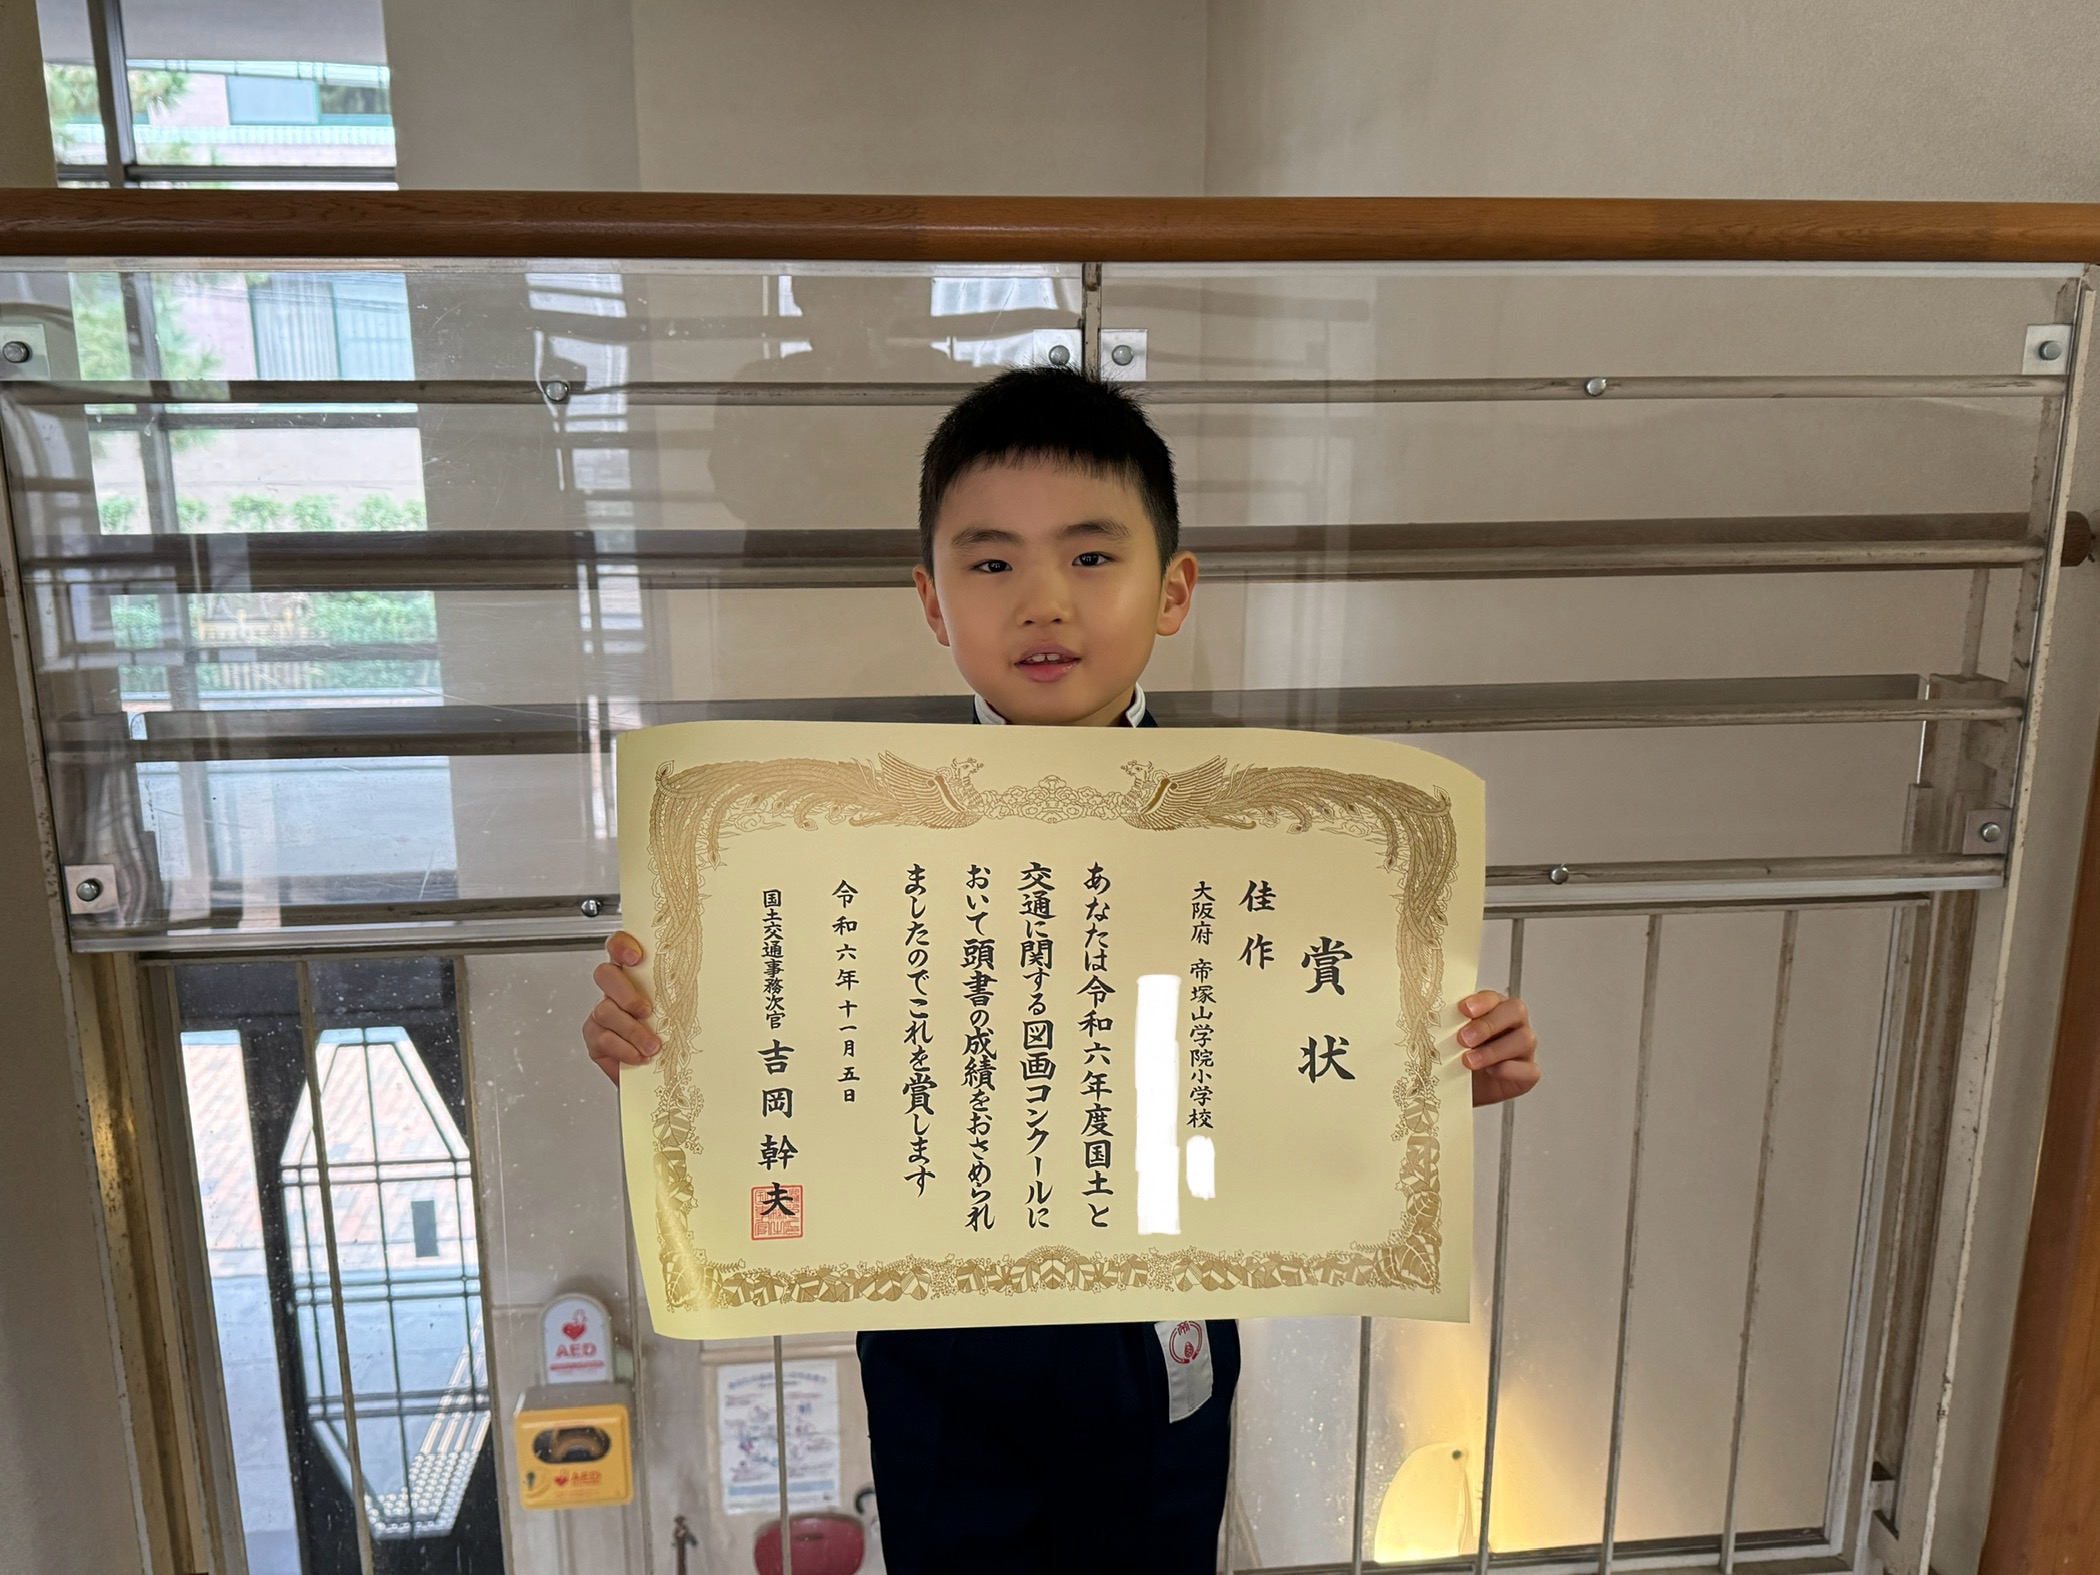 賞状
佳作
大阪府 帝塚山学院小学校
あなたは令和六年度国土と
交通に関する図画コンクールに
おいて頭書の成績をおさめられ
ましたのでこれを賞します
令和六年十一月五日
国土交通事務次官 吉岡幹夫
AED
AED